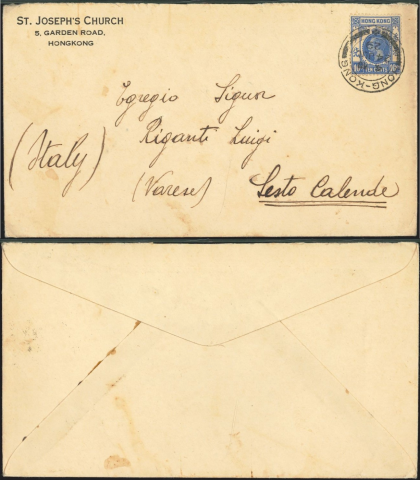 ST. JOSEPH'S CHURCH
5, GARDEN ROAD,
HONGKONG
HONG KONG
TEN CENTS
HONG-KONG
Egregio Signor
Riganti Luigi
(Italy)
(Varese) Sesto Calende